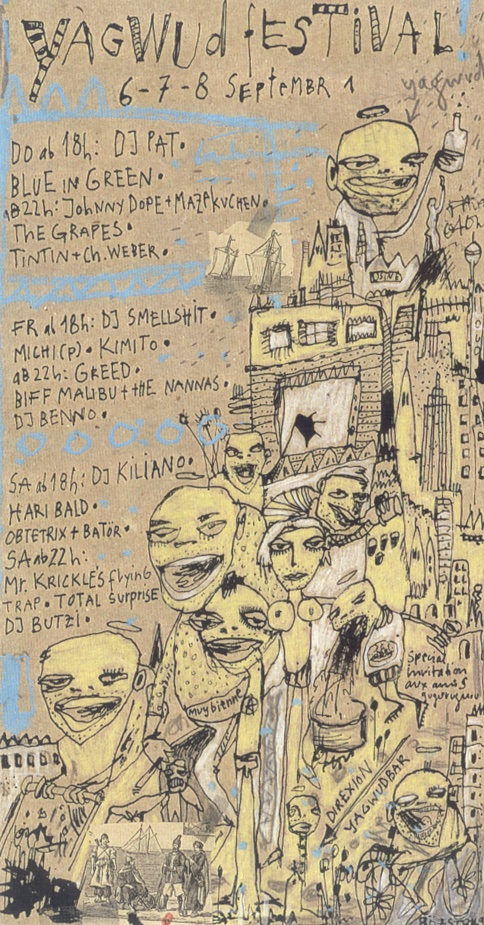 YAGWUd fESTiVAL
6-7-8 SEPTEMBR 1
yagwud
DO ab 18h: DJ PAT•
BLUE iN GREEN•
AB 22h: JOHNNY DOPE + MAZPKUCHEN•
THE GRAPES•
TiNTiN + Ch. WEBER•
FR ab 18h: DJ SMELLSHiT•
MiCHi(P)• KiMiTO•
aB 22h: GREED•
BiFF MALiBU + tHE NANNAS•
DJ BENNO•
SA ab 18h: DJ KiLiANO•
HARi BALD•
OBTETRiX + BATOR•
SA ab 22h:
Mr. KRiCKLES flying
TRAP• TOTAL SurpriSE
DJ BUTZi•
Muy bienne
Special
invitation
aux amis
DiREXiON
YAGWUDBAR